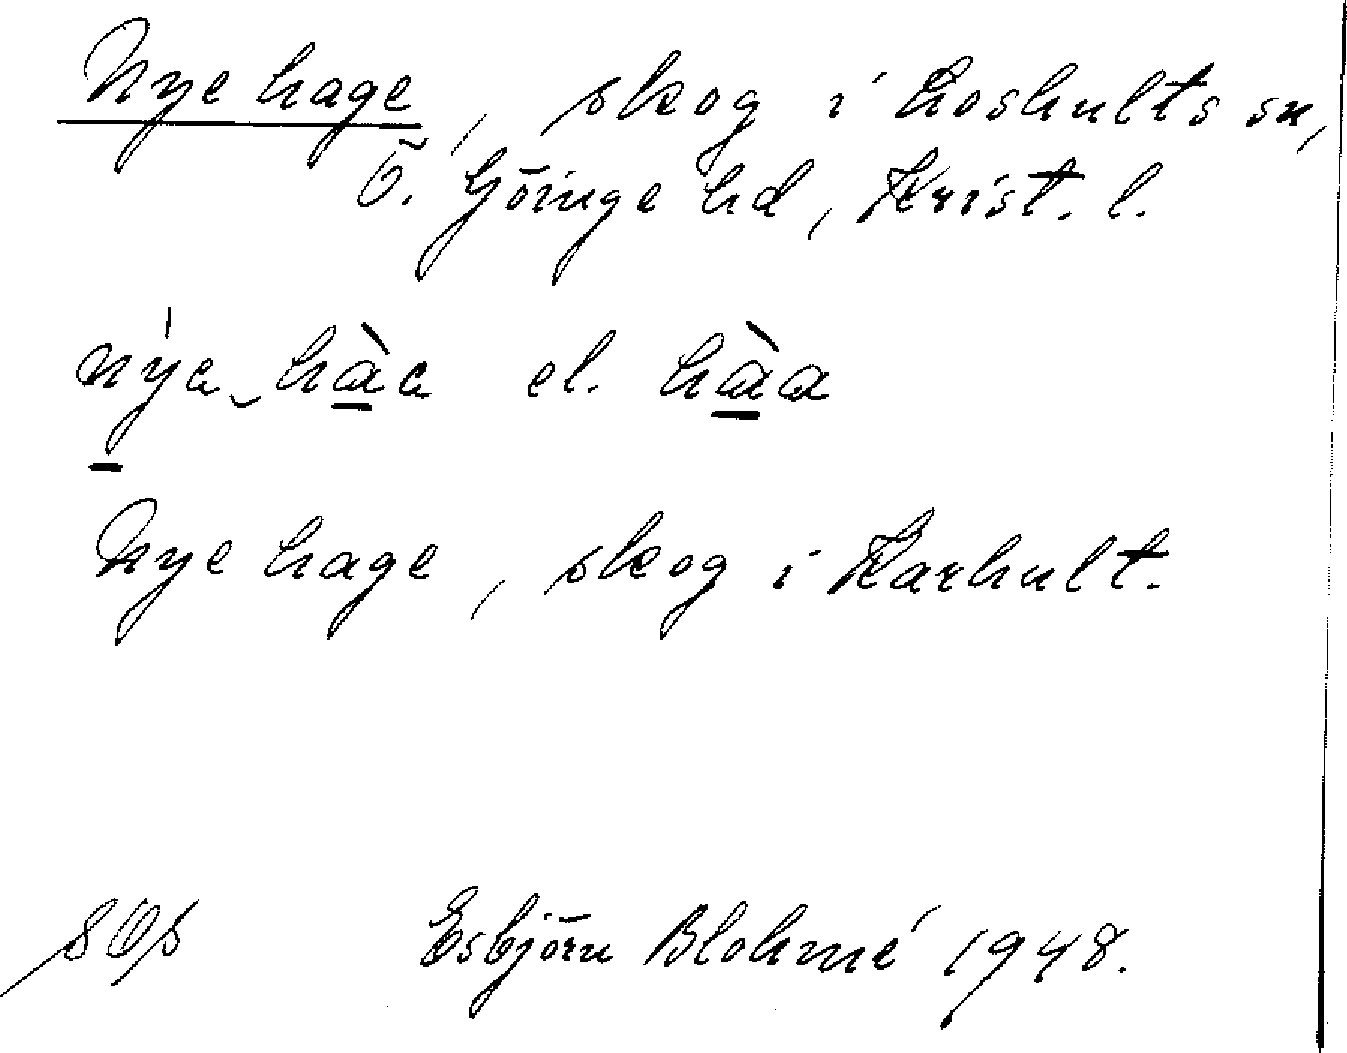 Nye hage, skog i Loshults sn,
Ö. Göinge hd, Krist. l.
nýa‿hàa el. hàa
Nye hage, skog i Karhult.
Esbjörn Blohmé 1948.